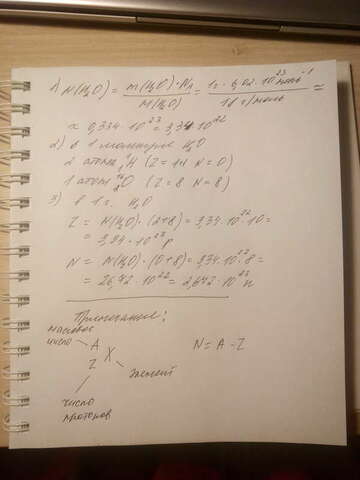 1) N(H₂O) = m(H₂O)·N_A / M(H₂O) = 1г · 6,02 · 10²³ моль⁻¹ / 18 г/моль ≈
≈ 0,334 · 10²³ = 3,34 · 10²²
2) в 1 молекуле H₂O
2 атома ¹₁H (Z = 1 и N = 0)
1 атом ¹⁶₈O (Z = 8 N = 8)
3) в 1 г. H₂O
Z = N(H₂O) · (2+8) = 3,34 · 10²² · 10 =
= 3,34 · 10²³ p
N = N(H₂O) · (0+8) = 3,34 · 10²² · 8 =
= 26,72 · 10²² = 2,672 · 10²³ n
Примечание:
массовое
число A
Z X N = A - Z
элемент
число
протонов